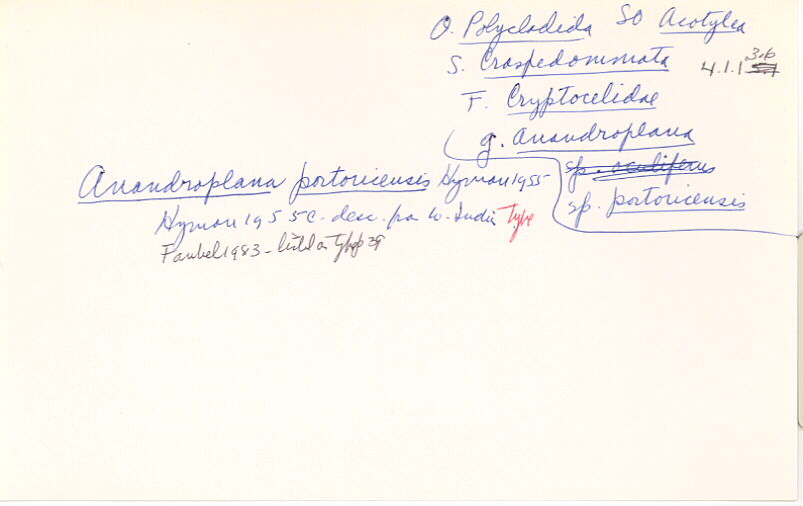 O. Polycladida SO Acotylea
S. Craspedommata 4.1.1 3.6
F. Cryptocelidae
g. Anandroplana
sp. oculiferus
Anandroplana portoricensis Hyman 1955
sp. portoricensis
Hyman 1955c. desc. W. Indies Type
Faubel 1983 - listed as type p 39